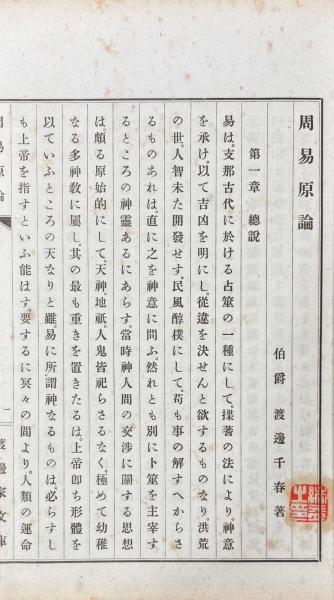 周易原論
伯爵 渡邊千春著
第一章 總說
易は、支那古代に於ける占筮の一種にして、揲蓍の法により、神意
を承け、以て吉凶を明にし、從違を決せんと欲するものなり。洪荒
の世、人智未た開發せす、民風醇樸にして、苟も事の解すへからさ
るものあれは、直に之を神意に問ふ。然れとも別に卜筮を主宰す
るところの神靈あるにあらす。當時神人間の交涉に關する思想
は、頗る原始的にして、天神、地祇、人鬼皆祀らさるなく、極めて幼稚
なる多神敎に屬し、其の最も重きを置きたるは、上帝卽ち形體を
以ていふところの天なりと雖、易に所謂神なるものは、必らすし
も上帝を指すといふ能はす。要するに冥々の間より、人類の運命
周易原論
一
渡邊家文庫